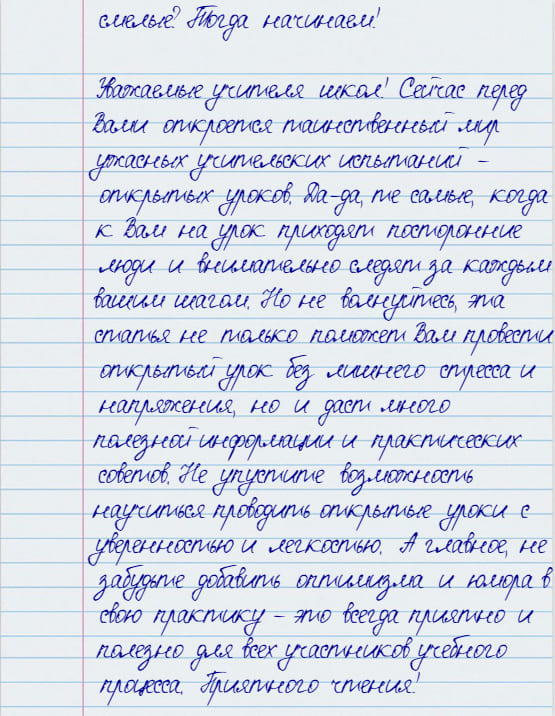 смелые? Тогда начинаем!
Уважаемые учителя школ! Сейчас перед
Вами откроется таинственный мир
ужасных учительских испытаний –
открытых уроков. Да-да, те самые, когда
к Вам на урок приходят посторонние
люди и внимательно следят за каждым
вашим шагом. Но не волнуйтесь, эта
статья не только поможет Вам провести
открытый урок без лишнего стресса и
напряжения, но и даст много
полезной информации и практических
советов. Не упустите возможность
научиться проводить открытые уроки с
уверенностью и легкостью. А главное, не
забудьте добавить оптимизма и юмора в
свою практику – это всегда приятно и
полезно для всех участников учебного
процесса. Приятного чтения!